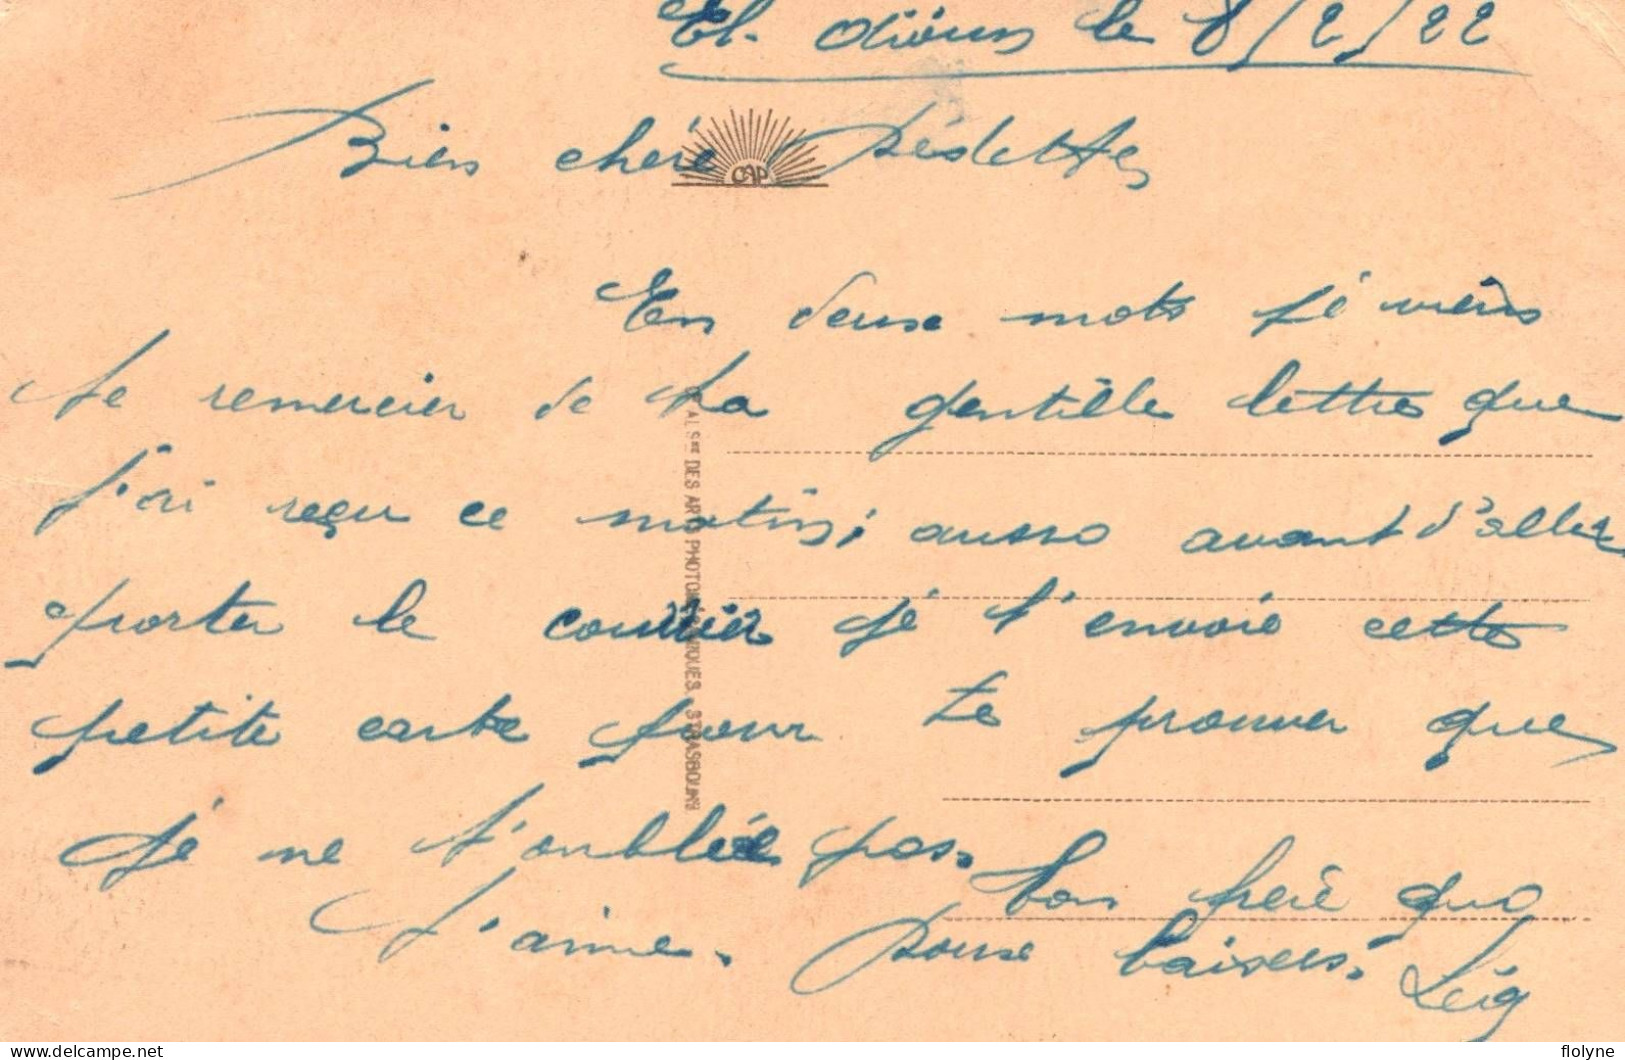 El. le 8/2/22
Bien chère
CAP
En deux mots je viens
te remercier de ta gentille lettre que
j'ai reçu ce matin; aussi avant d'aller
porter le courrier je t'envoie cette
petite carte pour te prouver que
je ne t'oublie pas.
Ton frère qui
t'aime. Doux baisers.
DES ARTS PHOTOMÉCANIQUES. STRASBOURG
flolyne
delcampe.net